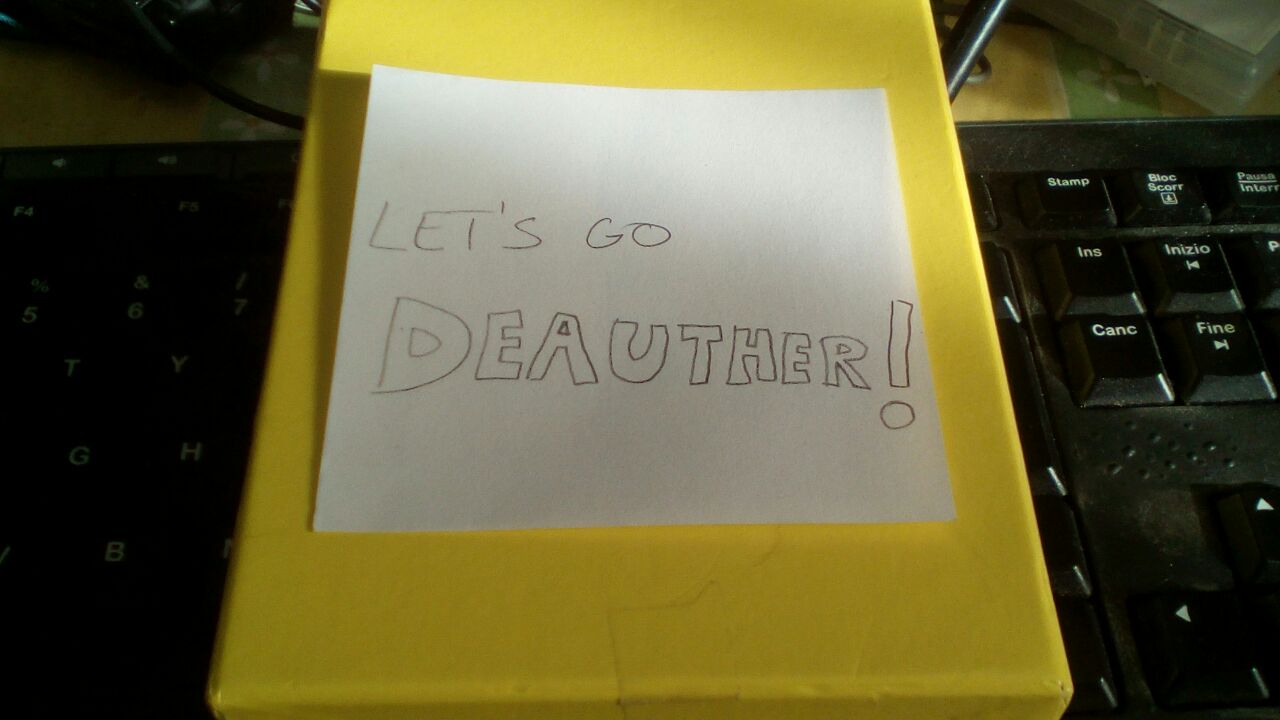 LET'S GO
DEAUTHER!
F4
F5
%
5
&
6
/
7
T
Y
G
H
B
Stamp
Bloc
Scorr
Pausa
Interr
Ins
Inizio
Canc
Fine